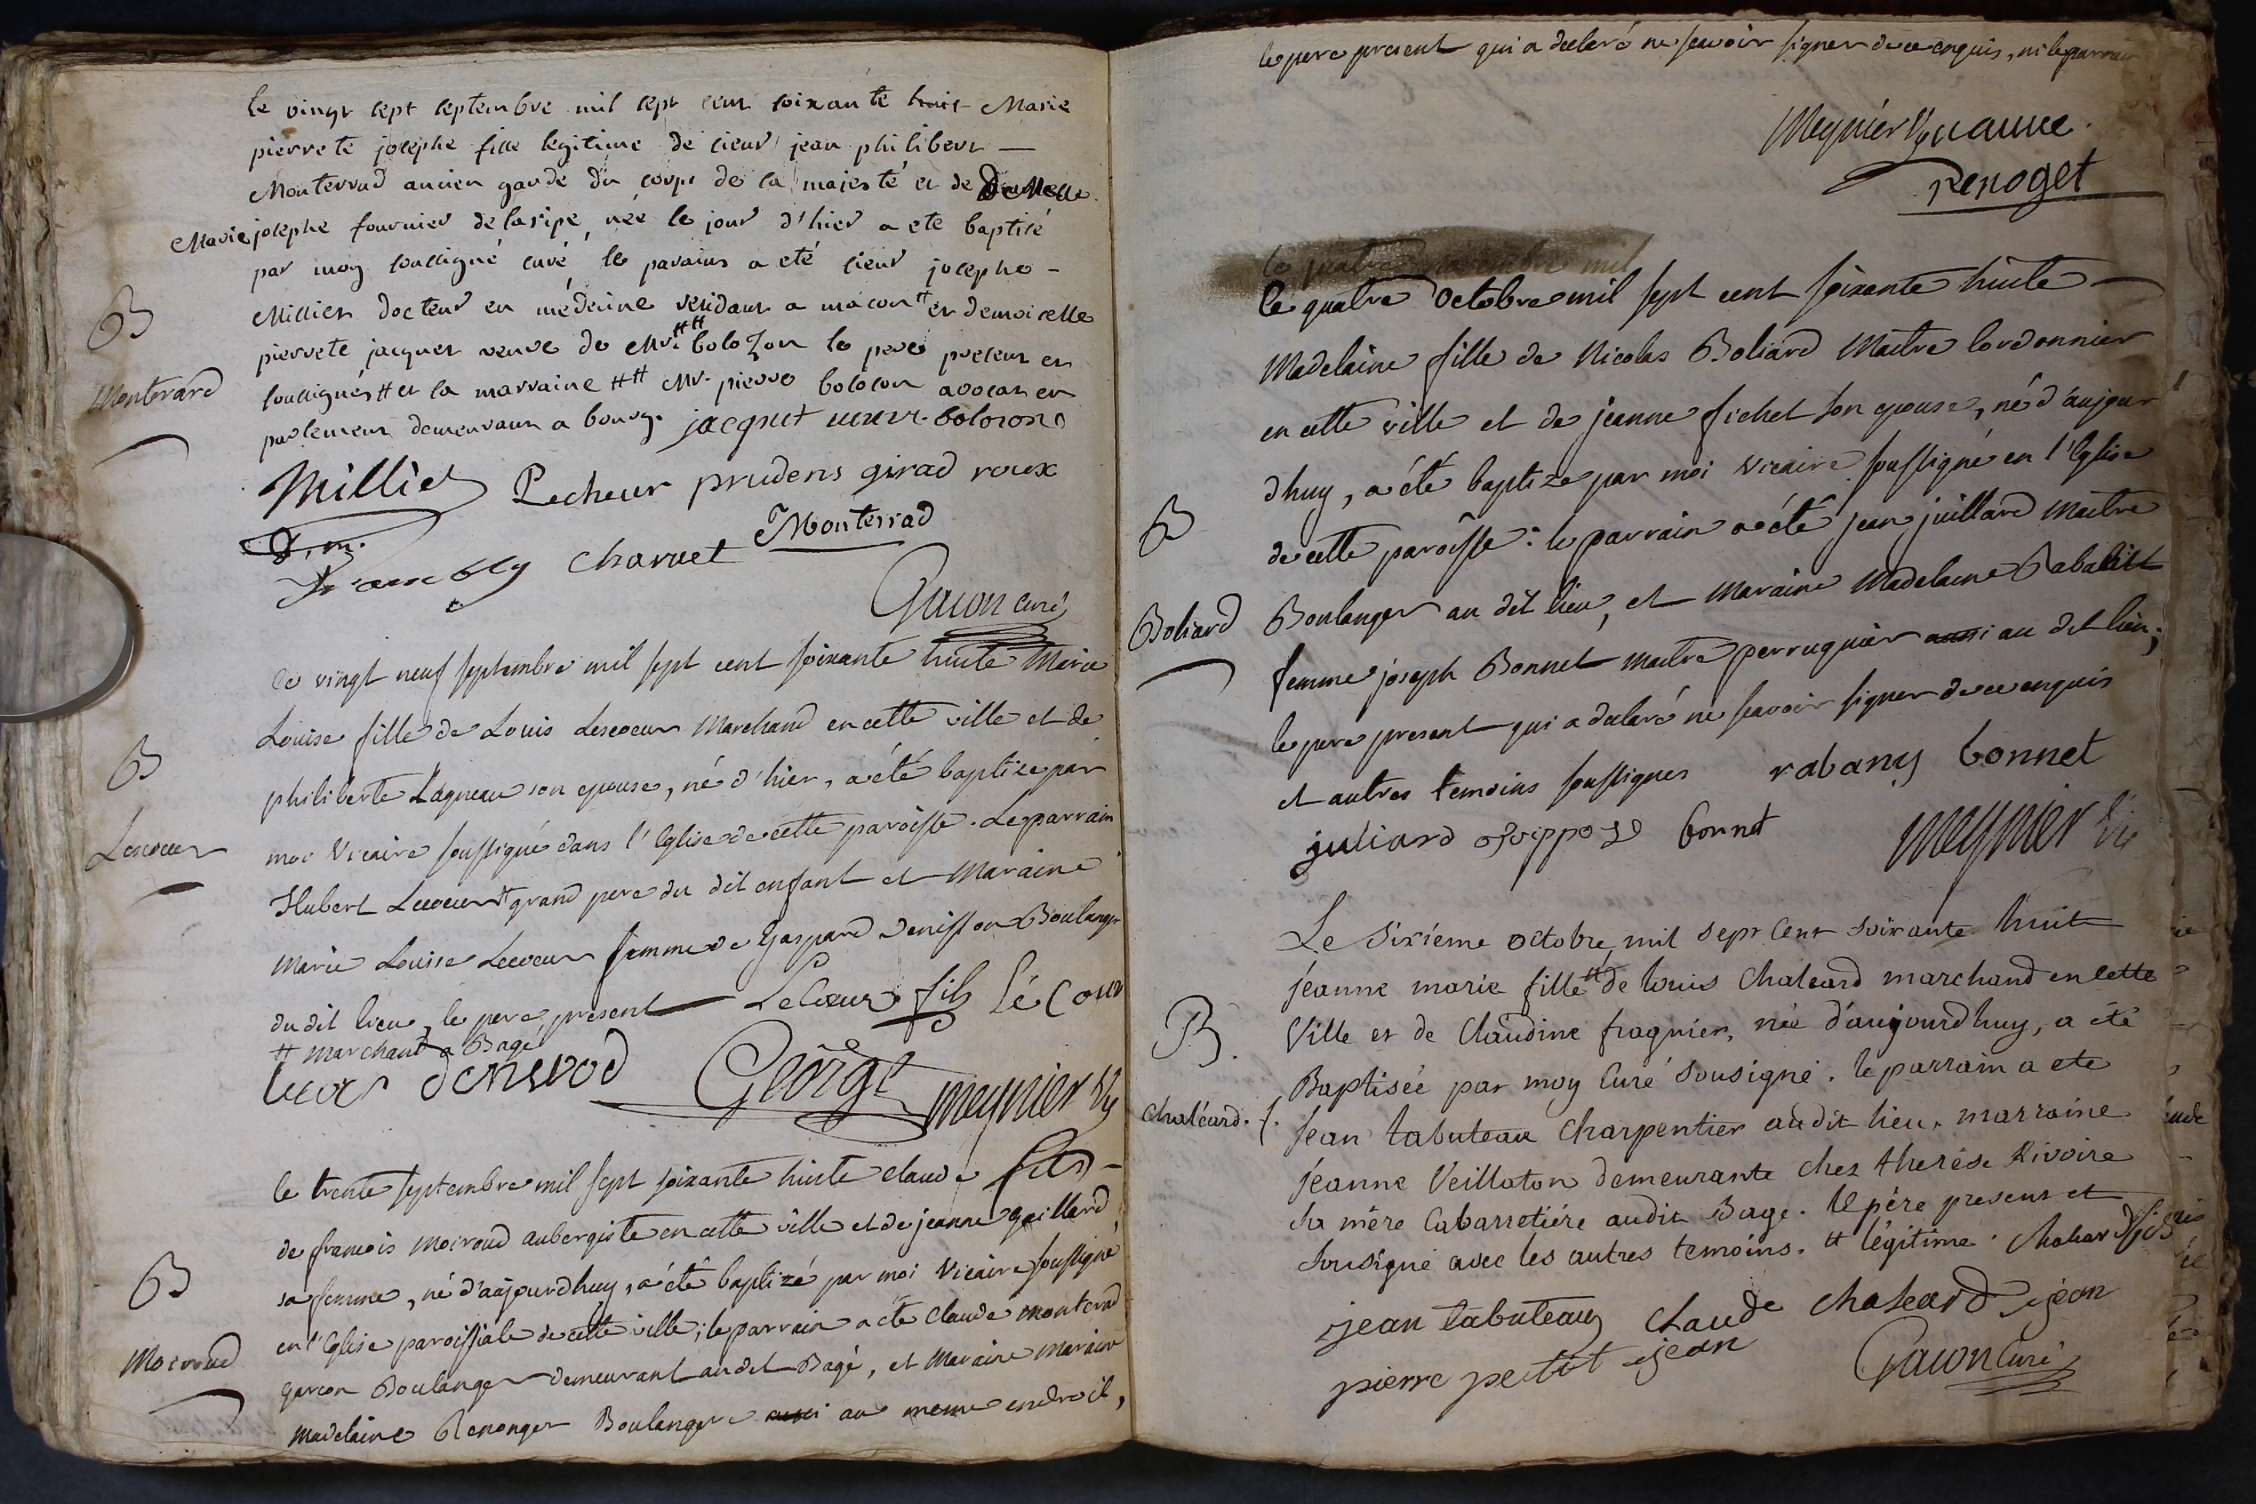 le vingt sept septembre mil sept cent soixante huit Marie
pierrete josephe fille legitime de sieur jean philibert —
Monterrad ancien garde du corps de sa majesté et de Demelle
Marie josephe fournier de laripe, née le jour d'hier a eté baptisé
par moy soussigné curé, le parains a eté sieur josephe -
B
Millier docteur en médecine residant a macon # et demoiselle
pierrete jacquet veuve de Mr. ## bolozon le pere present et
Monterard
soussignés # et la marraine ## Mr. pierre bolozon avocat en
parlement demeurant a bourg. jacquet veuve bolozon
Milliet Pecheur prudens girad roux
D. m. Charvet Monterrad
Gacon curé
Le vingt neuf septembre mil sept cent soixante huite Marie
Louise fille de Louis Lescoeur Marchand en cette ville et de
B
philiberte Lagneau son epouse, né d'hier, a été baptize par
Lescoeur
moi Vicaire soussigné dans l'Eglise de cette paroisse. Le parrain
Hubert Lecoeur # grand pere du dit enfant et Maraine
Marie Louise Lecoeur femme de Gaspard denisson Boulanger
du dit lieu, le pere present Le Coeur fils Lé Coeur
# marchant a Bagé
George meynier Vic
le trente septembre mil sept soixante huite claude fils -
de francois moiroud aubergiste en cette ville et de jeanne gaillard
B
sa femme, né d'aujourdhuy, a été baptizé par moi Vicaire soussigné
en l'Eglise paroissiale de cette ville; le parrain a été Claude monterad
Moiroud
garcon Boulanger demeurant au dit Bagé, et Maraine maraine
Madelaine Renonger Boulangere aussi au meme endroit,
le pere present qui a declaré ne scavoir signer de ce enquis, ni le parrain
Meynier Vicaire.
Renoget
le quatre mil
le quatre Octobre mil sept cent soixante huite —
Madelaine fille de Nicolas Boliard Maitre Cordonnier
en cette ville et de jeanne fichet son epouse, né d'aujour
dhuy, a été baptize par moi Vicaire soussigné en l'Eglise
B
de cette paroisse: le parrain a été jean juillard Maitre
Boliard
Boulanger au dit lieu, et Maraine Madelaine Rabailit
femme joseph Bonnet maitre perruquier aussi au dit lieu;
le pere present qui a declaré ne scavoir signer de ce enquis
et autres temoins soussignés rabany bonnet
juliard bonnet meynier Vic
Le Sixieme octobre mil sept Cent Soixante huit
jeanne marie fille # de louis Chaleard marchand en Cette
B.
Ville et de Claudine fragnier, née d'aujourdhuy, a été
Baptisée par moy Curé Sousigné. le parrain a ete
Chaléard.
Jean tabuteau Charpentier audit lieu. marraine
Jeanne Veillaton demeurante chez therése Rivoire
Sa mére Cabarretiére audit Bagé. le pére present et
Sousigné avec les autres temoins. # légitime. Chaleard fils
jean tabuteau Claude Chaleard jean
pierre petit jean Gacon Curé